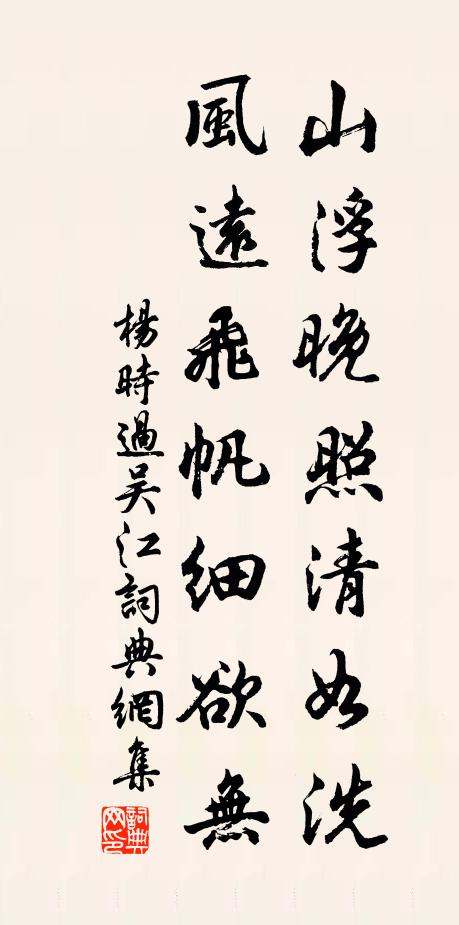 山浮晚照清如洗
風遠飛帆細欲無
楊時過吴江詞典網集
詞典网印